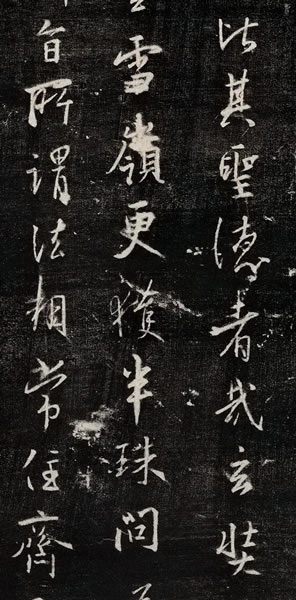 比其聖德者哉玄奘
雪嶺更獲半珠問
旨所謂法相常住齊